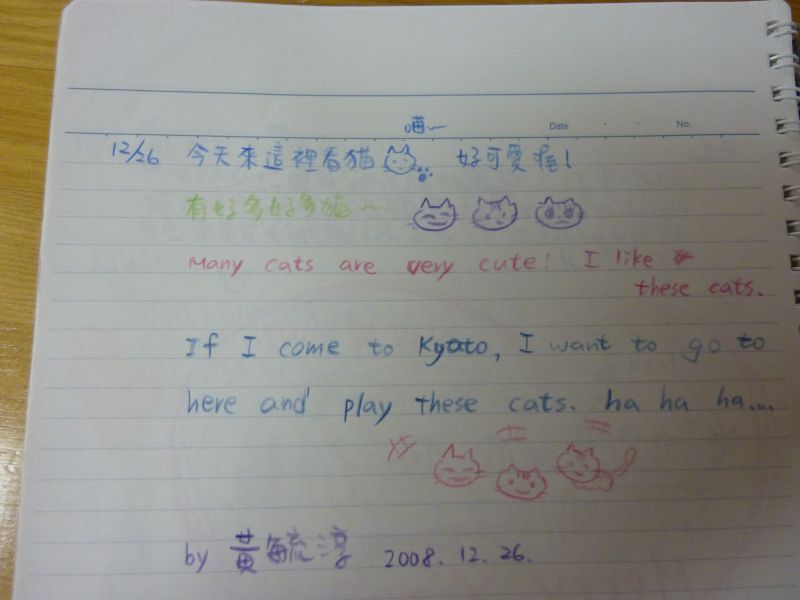 喵～ Date No.
12/26 今天來這裡看貓 好可愛喔!
有好多好多貓～
Many cats are very cute! I like
these cats.
If I come to Kyoto, I want to go to
here and play these cats. ha ha ha...
by 黃毓淳 2008.12.26.